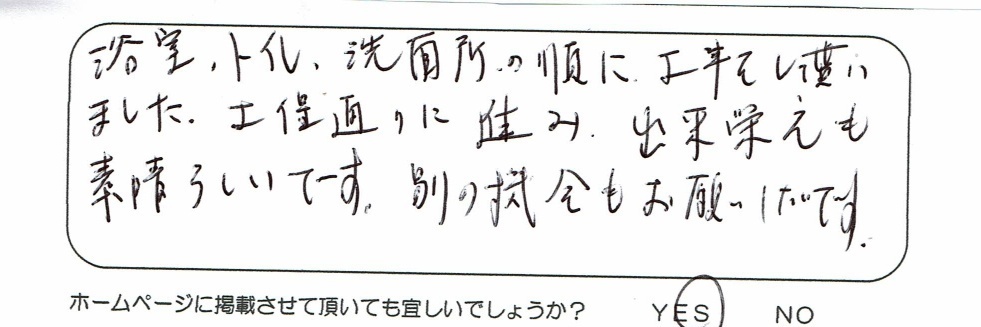 浴室、トイレ、洗面所の順に工事をして貰い
ました。工程通りに進み、出来栄えも
素晴らしいです。別の機会もお願いしたいです。
ホームページに掲載させて頂いても宜しいでしょうか? YES NO